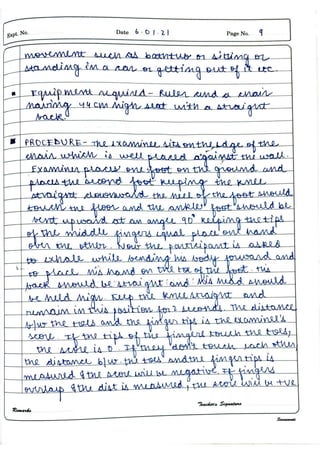 Expt. No. Date 6.01.21 Page No. 9
movement such as bathtub or sitting or
standing in a car or getting out of it etc.
• Equipment required - Ruler and a chair
having 44cm high seat with a straight
back
• PROCEDURE - The examinee sits on the edge of the
chair which is well placed against the wall.
Examiner places one foot on the ground and
places the second foot keeping the knee
straight downward the heel of the foot should
touch the floor and the ankle foot should be
bent upward at an angle 90° keeping the tips
of the middle fingers equal place one hand
over the other. Now the participant is asked
to exhale while bending his body forward and
to place his hand on the toe of the foot. His
back should be straight and his head should
be held high keep the knee straight and
remain in this position for 2 seconds. The distance
b/w the toes and the finger tips is the examinee's
score. If the tips of the fingers touch the toes,
the score is 0. If they don't touch each other,
the distance b/w the toes and the finger tips is
measured & the score will be negative. If fingers
overlap & the dist is measured, the score will be +ve
Remarks Teacher's Signature